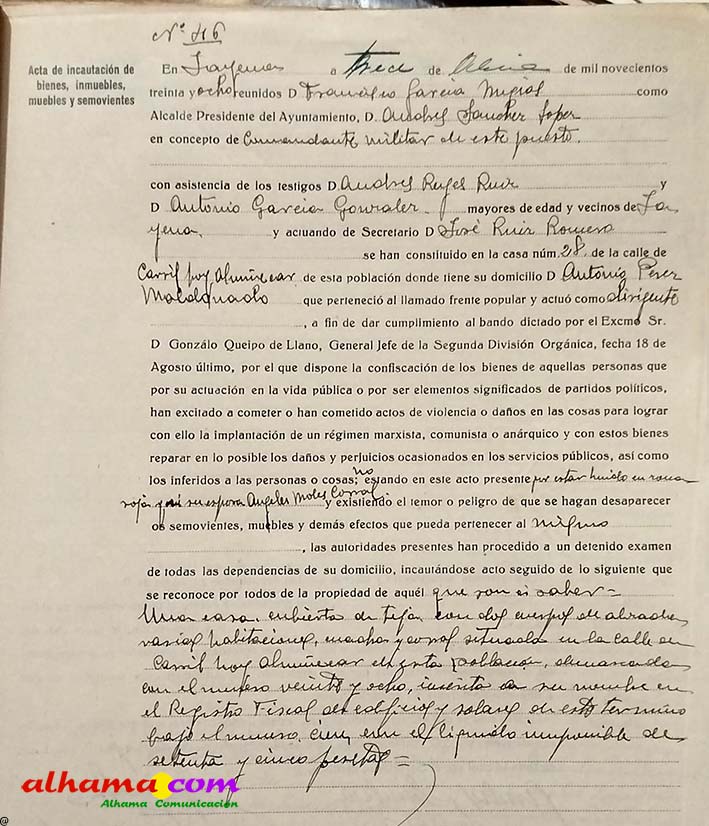 Nº 46
Acta de incautación de
bienes, inmuebles,
muebles y semovientes
En Jayena a trece de Abril de mil novecientos
treinta y ocho reunidos D Francisco Garcia Migias como
Alcalde Presidente del Ayuntamiento, D. Andres Sanchez Lopez
en concepto de Commandante militar de este puesto.
con asistencia de los testigos D. Andres Ruiz y
D Antonio Garcia Gonzalez. mayores de edad y vecinos de Ja
yena. y actuando de Secretario D José Ruiz Romero
se han constituido en la casa núm. 28. de la calle de
Carril hoy Almuñecar de esta población donde tiene su domicilio D Antonio Perez
Maldonado que perteneció al llamado frente popular y actuó como dirigente
, a fin de dar cumplimiento al bando dictado por el Excmo Sr.
D Gonzálo Queipo de Llano, General Jefe de la Segunda División Orgánica, fecha 18 de
Agosto último, por el que dispone la confiscación de los bienes de aquellas personas que
por su actuación en la vida pública o por ser elementos significados de partidos políticos,
han excitado a cometer o han cometido actos de violencia o daños en las cosas para lograr
con ello la implantación de un régimen marxista, comunista o anárquico y con estos bienes
reparar en lo posible los daños y perjuicios ocasionados en los servicios públicos, así como
los inferidos a las personas o cosas; no estando en este acto presente por estar huido en zona
roja y su esposa Angeles Moles Corral y existiendo el temor o peligro de que se hagan desaparecer
os semovientes, muebles y demás efectos que pueda pertenecer al mismo
, las autoridades presentes han procedido a un detenido examen
de todas las dependencias de su domicilio, incautándose acto seguido de lo siguiente que
se reconoce por todos de la propiedad de aquél que son á saber=
Una casa. cubierta de teja, con dos cuerpos de alzada,
varias habitaciones, cuadra y corral situada en la calle de
Carril hoy Almuñecar de esta población, demarcada
con el numero veinte y ocho, inscrita a su nombre en
el Registro Fiscal de edificios y solares de este termino
bajo el numero, cien, con el liquido imponible de
setenta y cinco pesetas =
alhama.com
Alhama Comunicación
@